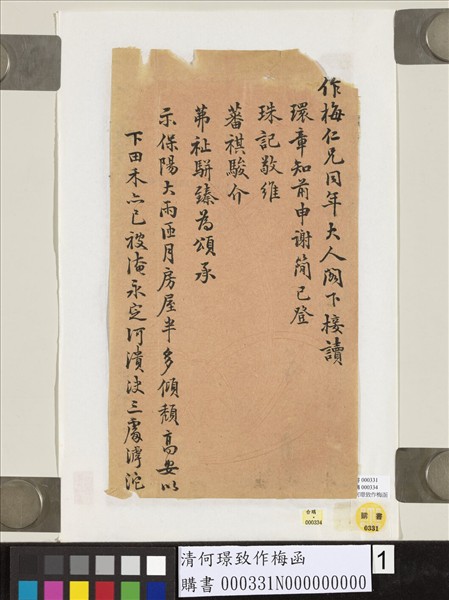 作梅仁兄同年大人閣下接讀
環章知前申謝簡已登
珠記敬維
蕃祺駿介
茀祉駢臻為頌承
示保陽大雨匝月房屋半多傾頹高安以
下田禾亦已被淹永定河潰決三處滹沱
000331
000334
何璟致作梅函
台購
000334
購書
0331
清何璟致作梅函
購書 000331N000000000
1